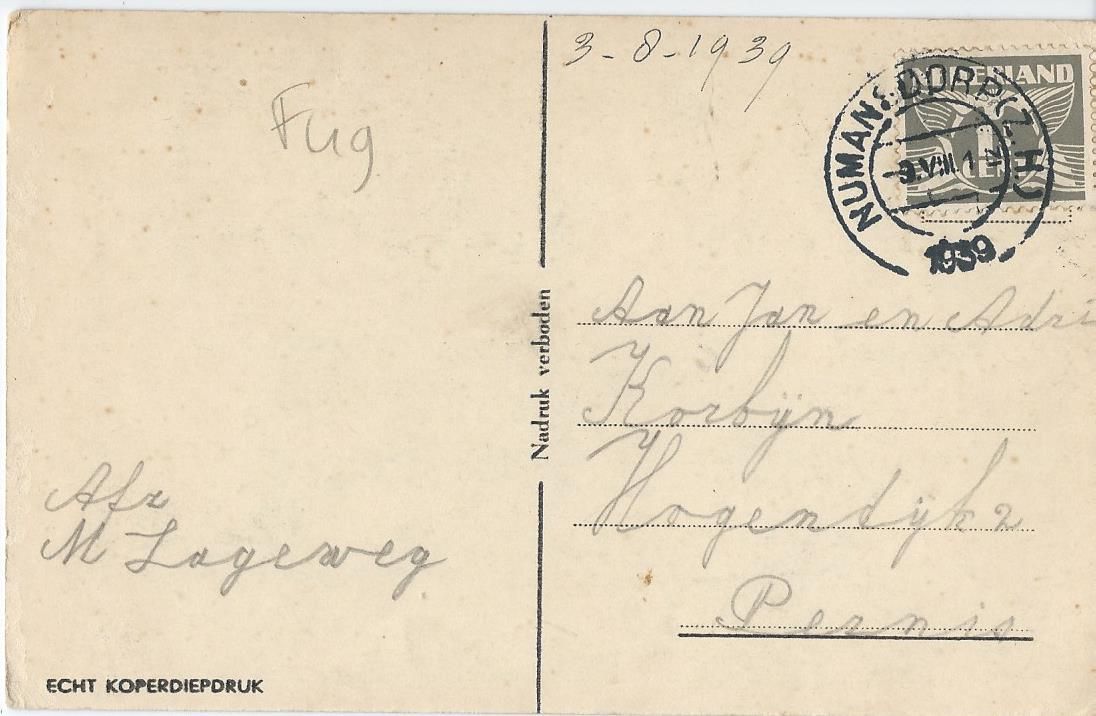 3-8-1939
Fug
NEDERLAND
CENT
NUMANSDORP (Z.H.)
VIII.1
1939
Nadruk verboden
Aan Jan en Adri
Korbijn
Hogendijk 2
Pernis
Afz
M Lageweg
ECHT KOPERDIEPDRUK